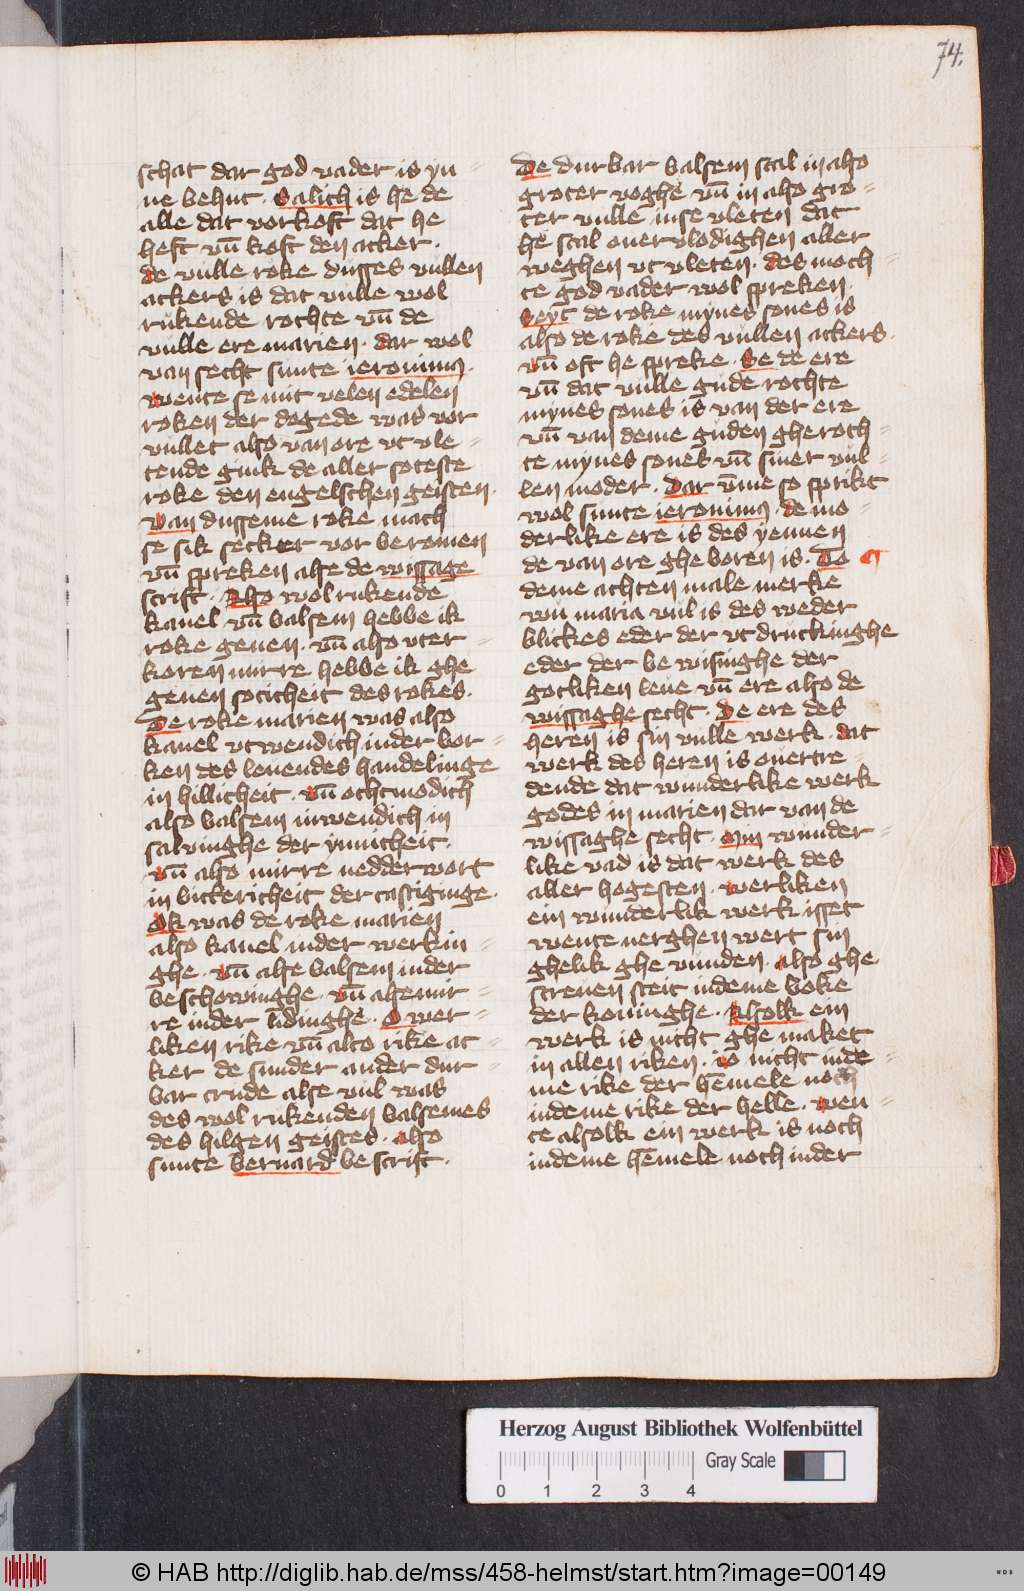 74.
schat dar god vader is yn
ne behut . Salich is he de
alle dat vorkoft dat he
heft vn̄ koft den acker .
de vulle roke dusses vullen
ackers is dat vulle wol
rukende rochte vn̄ de
vulle ere marien . dar wol
van secht sunte ieronimus .
wente se mit velen edelen
roken der dogede was vor
vullet also van ore vt vle
tende gink de aller soteste
roke den engelschen geisten .
Van dusseme roke mach
se sik secker vor beromen
vn̄ spreken alse de wissage
scrift . Also wol rukende
kanel vn̄ balsem hebbe ik
roke geuen . vn̄ also vter
koren mirre hebbe ik ghe
geuen soticheit des rokes .
De roke marien was also
kanel vtwendich in der bor
ken des leuendes handelinge
in hillicheit . vn̄ othmodich
also balsem inwendich in
saluinghe der ynnicheit .
vn̄ also mirre nedderwort
in bittericheit der castiginge .
Ok was de roke marien
also kanel in der werkin
ghe . vn̄ alse balsem in der
beschowinghe . vn̄ alse mir
re in der lidinghe . O wer
liken rike vn̄ alto rike ac
ker de sunder ander dur
bar crude alse vul was
des wol rukenden balsemes
des hilgen geistes . also
sunte bernard bescrift .
De durbar balsem scal in also
groter voghe vn̄ in also gro
ter vulle inse vleten dat
he scal ouervlodighen aller
weghen vt vleten . des moch
te god vader wol spreken .
Seyt de roke mynes sones is
also de roke des vullen ackers .
vn̄ oft he spreke . Se de ere
vn̄ dat vulle gude rochte
mynes sones is van der ere
vn̄ van deme guden gheroch
te mynes sones vn̄ siner vul
len moder . Dar vme so sprikt
wol sunte ieronimus . de mo
derlike ere is des yennen
de van ore ghe boren is . To
deme achten male merke
wu maria vul is des weder
blickes eder der vt druckinghe
eder der be wisinghe der
gotliken leue vn̄ ere also de
wissaghe secht . De ere des
heren is sin vulle werk . dat
werk des heren is ouertre
dende dat wunderlike werk
godes in marien dar van de
wissaghe secht . Min wunder
like vad is dat werk des
aller hogesten . werliken
ein wunderlik werk isset
wente nerghen wert sin
ghelik ghe vunden . also ghe
screuen steit in deme boke
der koninghe . Alsolk ein
werk is nicht ghe maket
in allen riken . io nicht in de
me rike der hēmele noch
in deme rike der helle . wen
te alsolk ein werk is noch
in deme hēmele noch in der
Herzog August Bibliothek Wolfenbüttel
Gray Scale
0 1 2 3 4
© HAB http://diglib.hab.de/mss/458-helmst/start.htm?image=00149